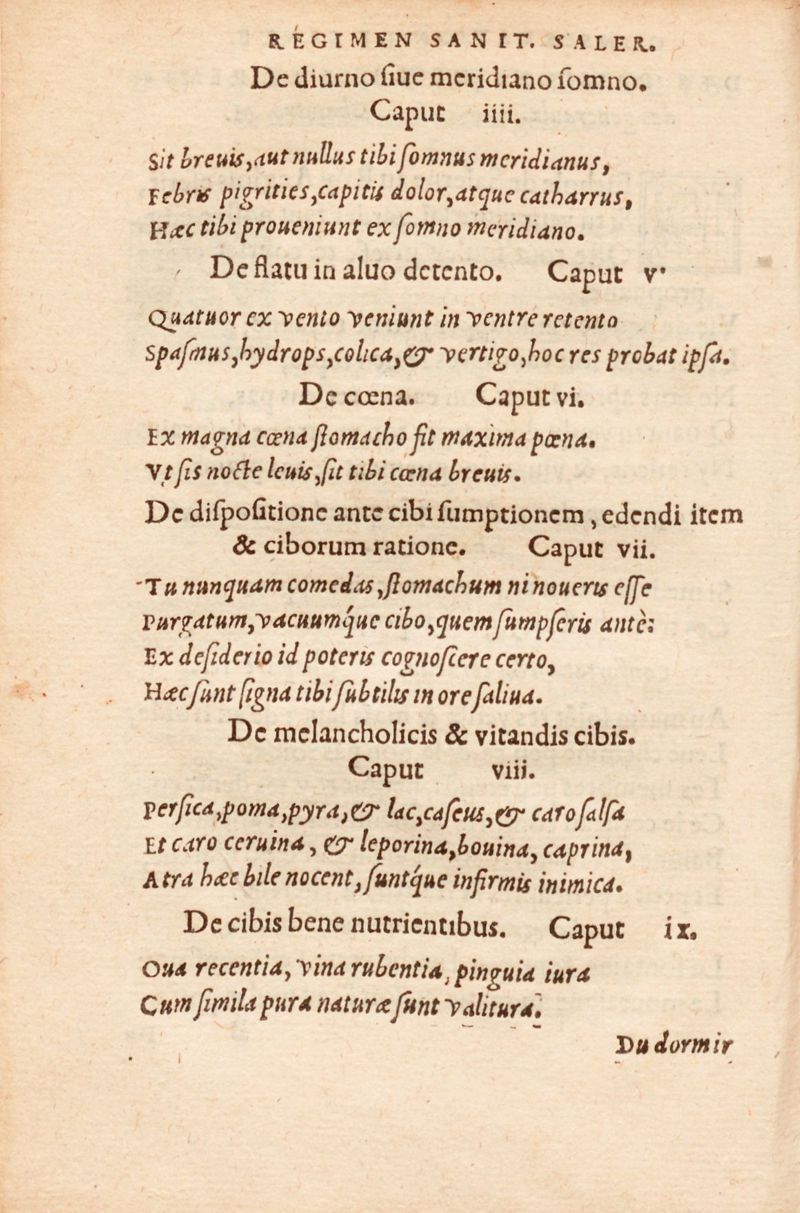 REGIMEN SANIT. SALER.
De diurno ſiue meridiano ſomno.
Caput iiii.
Sit breuis, aut nullus tibi ſomnus meridianus,
Febris pigrities, capitis dolor, atque catharrus,
Hæc tibi proueniunt ex ſomno meridiano.
De flatu in aluo detento. Caput v.
Quatuor ex vento veniunt in ventre retento
Spaſmus, hydrops, colica, & vertigo, hoc res probat ipſa.
De cœna. Caput vi.
Ex magna cœna ſtomacho fit maxima pœna.
Vt ſis nocte leuis, ſit tibi cœna breuis.
De diſpoſitione ante cibi ſumptionem, edendi item
& ciborum ratione. Caput vii.
Tu nunquam comedas, ſtomachum ni noueris eſſe
Purgatum, vacuumq́ue cibo, quem ſumpſeris antè:
Ex deſiderio id poteris cognoſcere certo,
Hæc ſunt ſigna tibi ſubtilis in ore ſaliua.
De melancholicis & vitandis cibis.
Caput viii.
Perſica, poma, pyra, & lac, caſeus, & caro ſalſa
Et caro ceruina, & leporina, bouina, caprina,
Atra hæc bile nocent, ſuntq́ue infirmis inimica.
De cibis bene nutrientibus. Caput ix.
Oua recentia, vina rubentia, pinguia iura
Cum ſimila pura naturæ ſunt valitura.
Du dormir